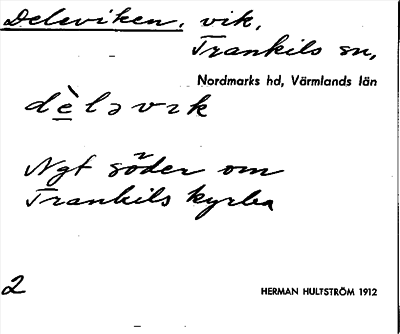 Deleviken, vik,
Trankils sn,
Nordmarks hd, Värmlands län
dè̱ləvɪk
Ngt söder om
Trankils kyrka
2
HERMAN HULTSTRÖM 1912